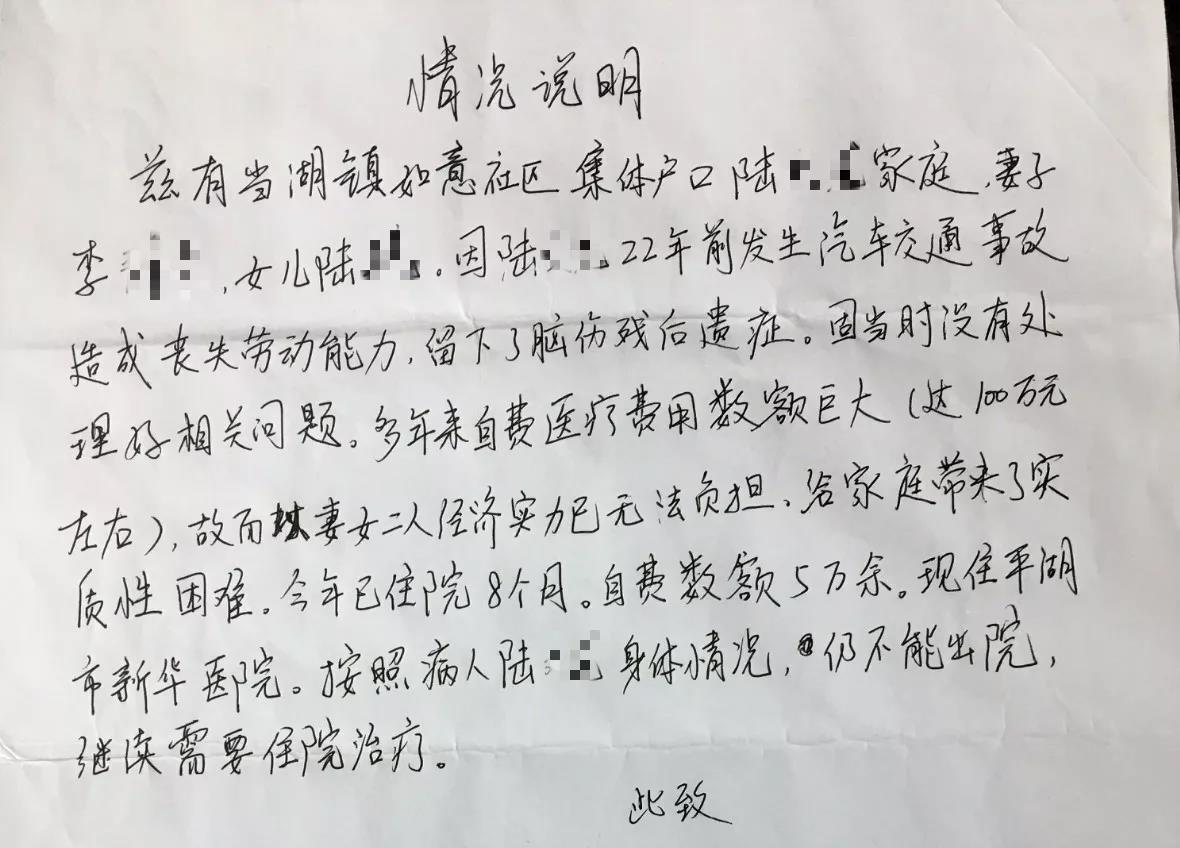 情况说明
兹有当湖镇如意社区集体户口陆家庭，妻子
李，女儿陆。因陆22年前发生汽车交通事故
造成丧失劳动能力，留下了脑伤残后遗症。因当时没有处
理好相关问题。多年来自费医疗费用数额巨大（达100万元
左右），故而妻女二人经济实力已无法负担、给家庭带来了实
质性困难。今年已住院8个月。自费数额5万余。现住平湖
市新华医院。按照病人陆身体情况，仍不能出院，
继续需要住院治疗。
此致